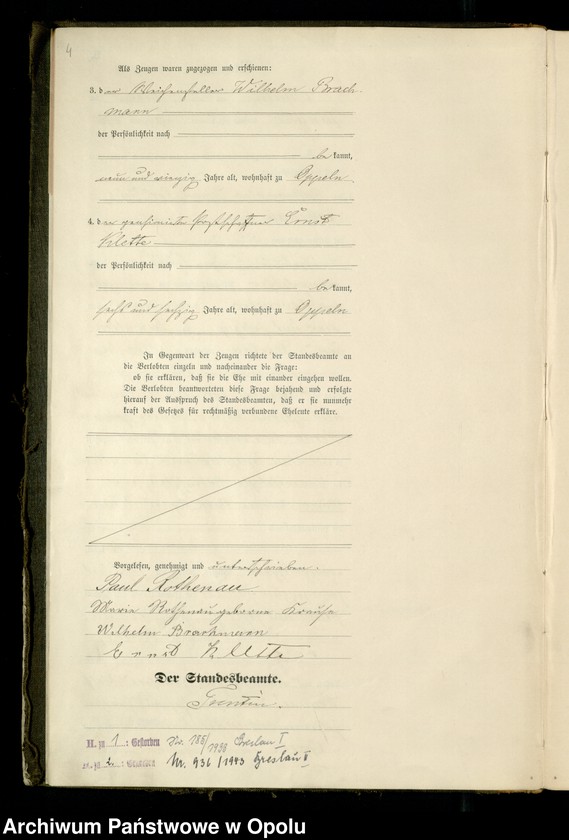 4
Als Zeugen waren zugezogen und erschienen:
3. der Wilhelm Brach
mann
der Persönlichkeit nach
be kannt,
neun und vierzig Jahre alt, wohnhaft zu Oppeln.
4. der pensionierte Postschaffner Ernst
Klette
der Persönlichkeit nach
be kannt,
sechs und sechzig Jahre alt, wohnhaft zu Oppeln
In Gegenwart der Zeugen richtete der Standesbeamte an
die Verlobten einzeln und nacheinander die Frage:
ob sie erklären, daß sie die Ehe mit einander eingehen wollen.
Die Verlobten beantworteten diese Frage bejahend und erfolgte
hierauf der Ausspruch des Standesbeamten, daß er sie nunmehr
kraft des Gesetzes für rechtmäßig verbundene Eheleute erkläre.
Vorgelesen, genehmigt und unterschrieben.
Paul Rothenau
Marie Rothenau geborne Krause
Wilhelm Brachmann
Ernst Klette
Der Standesbeamte.
H. zu 1: Gestorben Nr. 186/1938 Breslau I
zu 2: Gestorben Nr. 936/1943 Breslau II
Archiwum Państwowe w Opolu